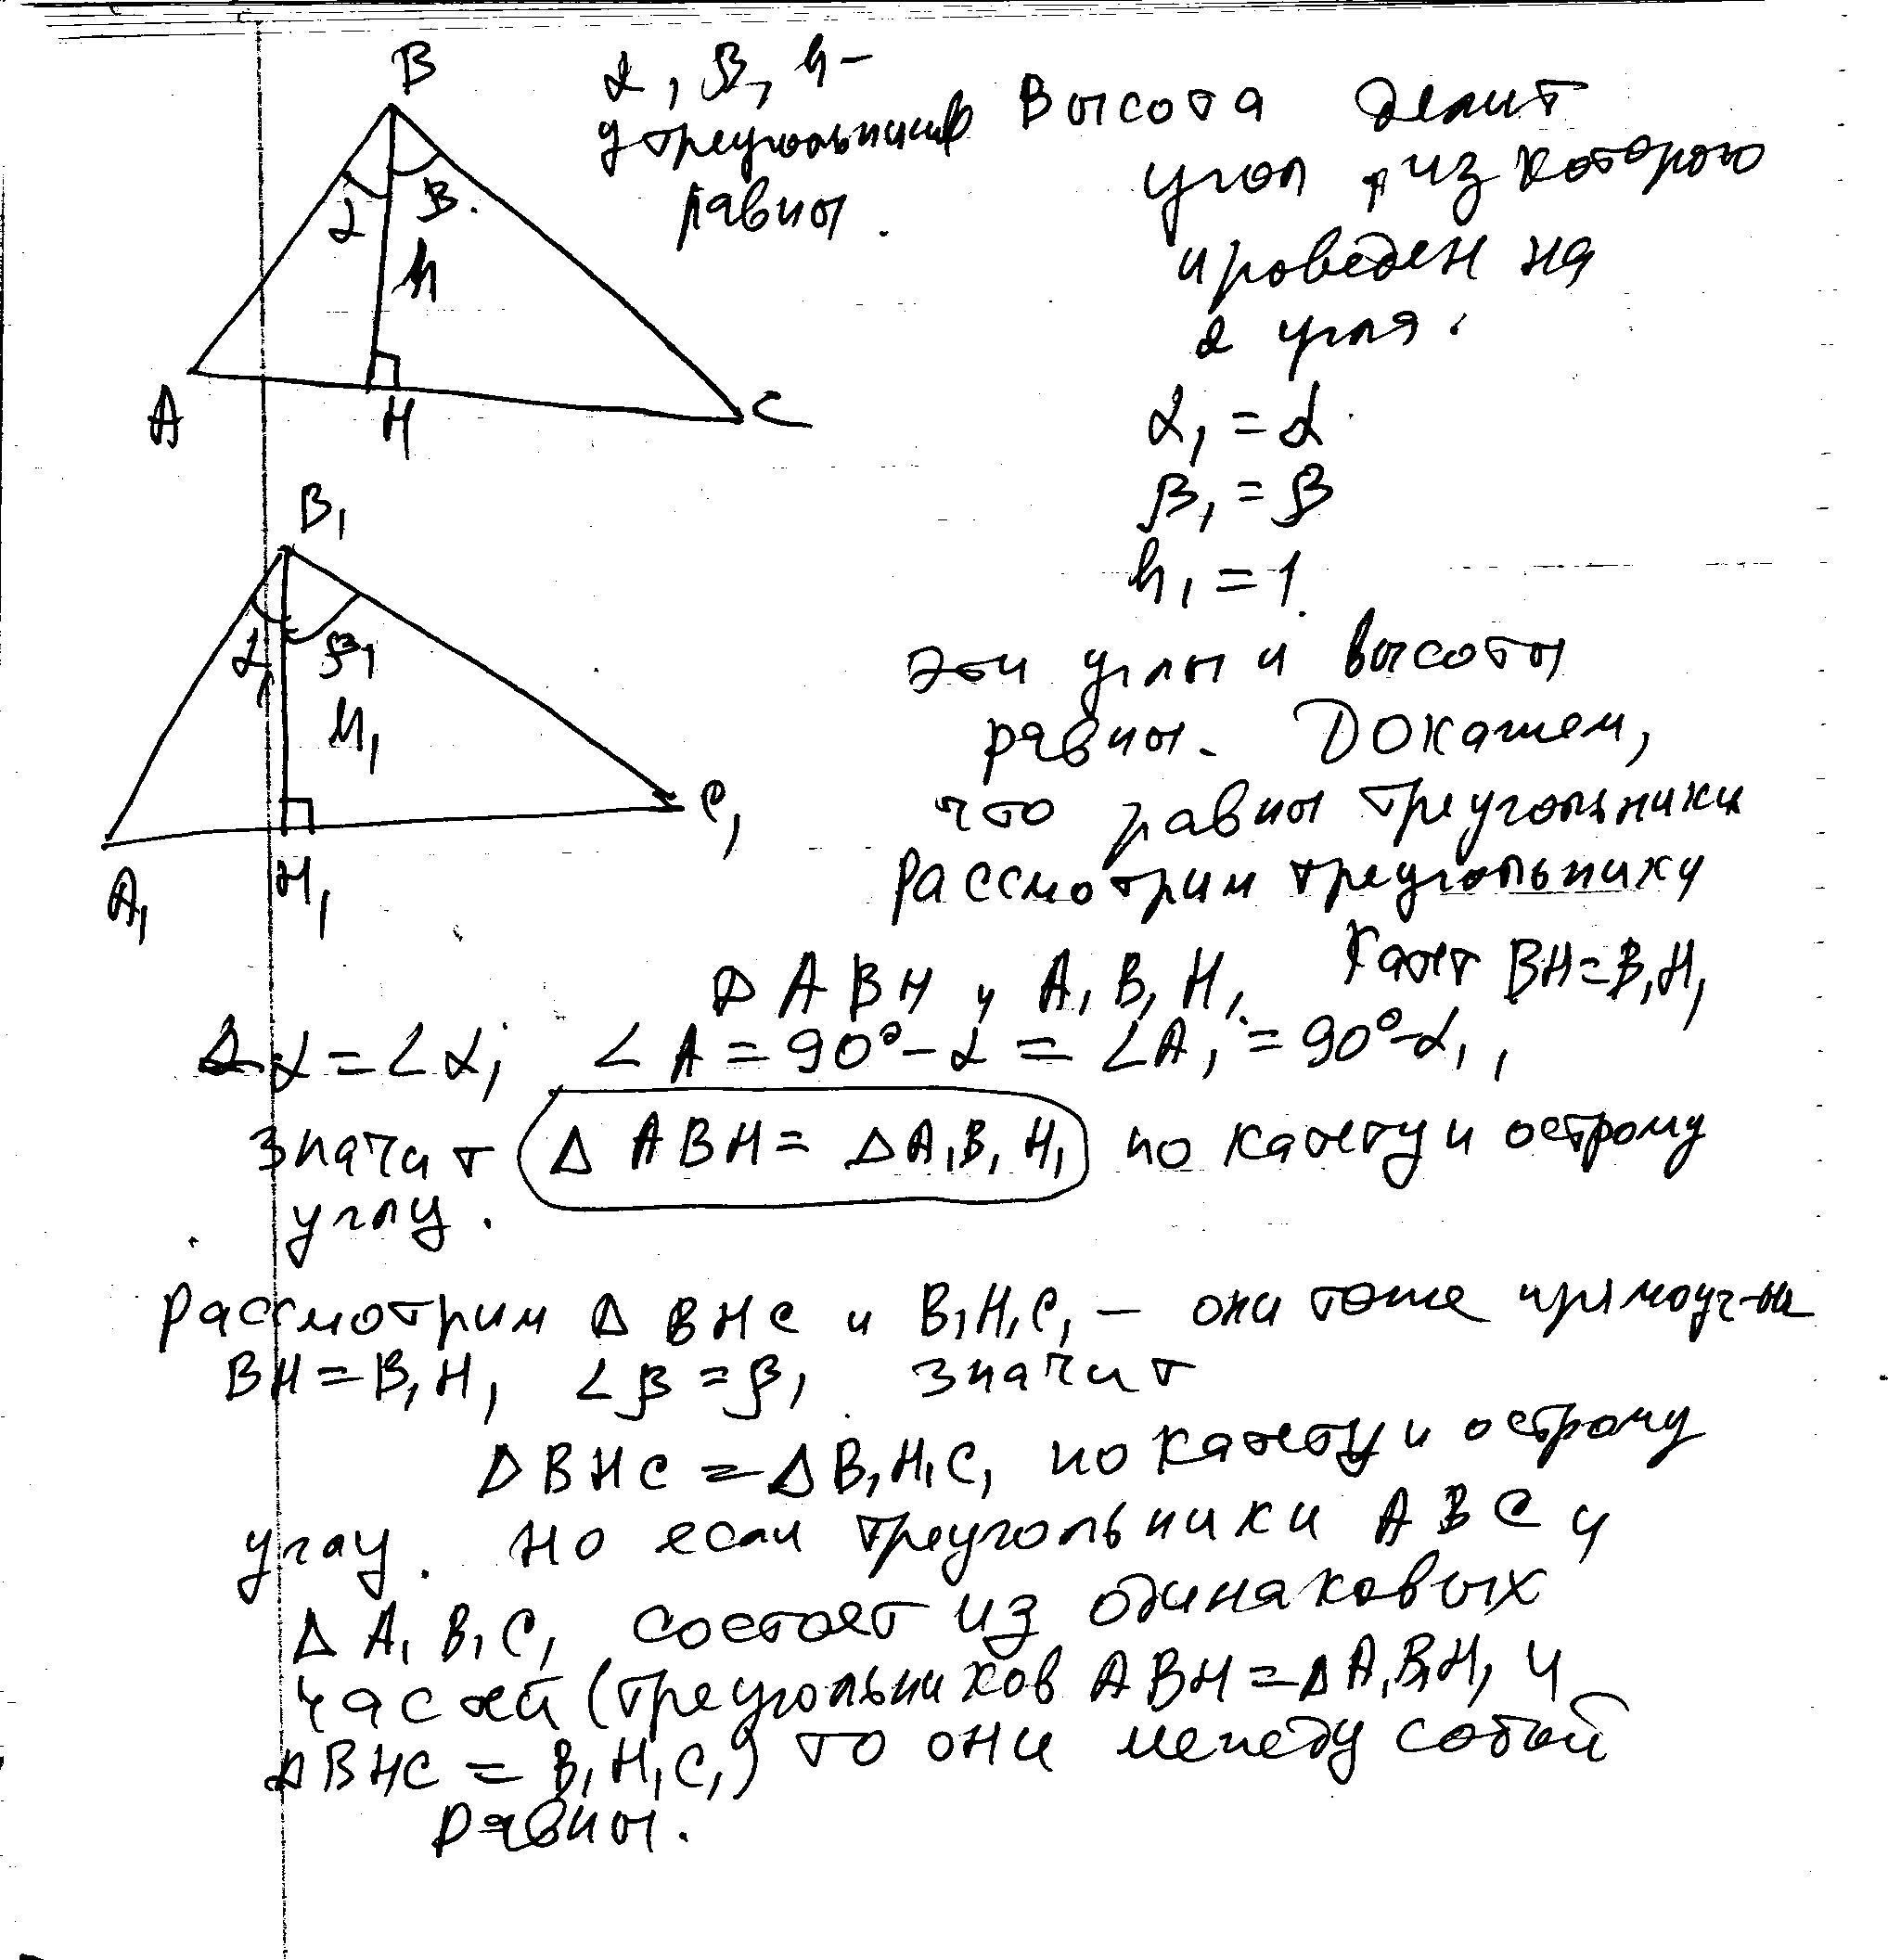 B
α, β, h -
у треугольников
равны.
Высота делит
угол, из которого
проведен на
2 угла.
α β.
h
A H C
α₁ = α
β₁ = β
h₁ = 1
B₁
α₁ β₁
h₁
A₁ H₁ C₁
эти углы и высоты
равны. Докажем,
что равны треугольники
Рассмотрим треугольники
Δ ABH и A₁B₁H₁. Катет BH = B₁H₁
∠α = ∠α₁ ∠A = 90° - α = ∠A₁ = 90° - α₁,
значит Δ ABH = Δ A₁B₁H₁ по катету и острому
углу.
Рассмотрим Δ BHC и B₁H₁C₁ - они тоже прямоуг-ы
BH = B₁H₁ ∠β = β₁ значит
Δ BHC = Δ B₁H₁C₁ по катету и острому
углу. Но если треугольники ABC и
Δ A₁B₁C₁ состоят из одинаковых
частей (треугольников ABH = Δ A₁B₁H₁ и
Δ BHC = B₁H₁C₁) то они между собой
равны.